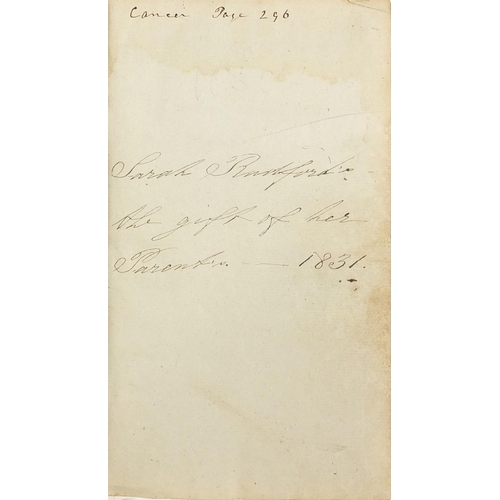 Cancer Page 296
Sarah Radford's
the gift of her
Parents. — 1831.